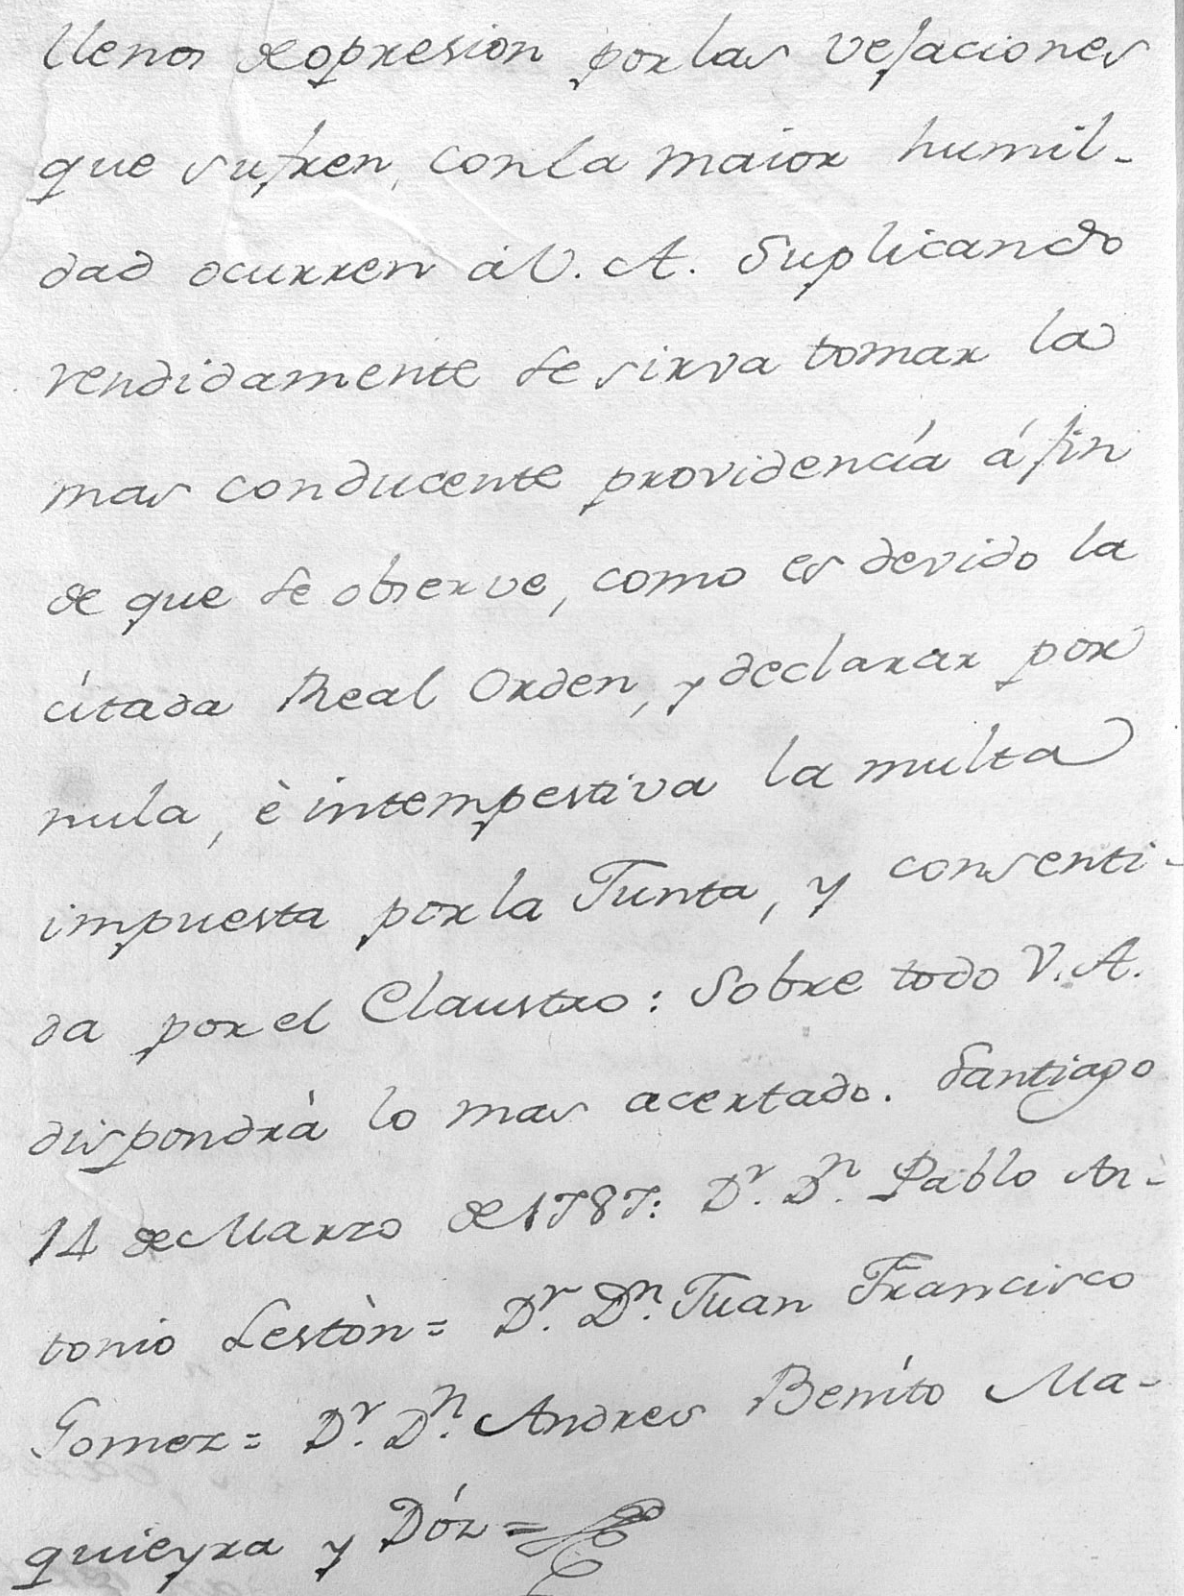 llenos de opresion por las vejaciones
que sufren, con la maior humil-
dad ocurren à V. A. Suplicando
rendidamente se sirva tomar la
mas conducente providencía á fin
de que se observe, como es devido la
cítada Real Orden, y declarar por
nula, è intempestiva la multa
impuesta por la Junta, y consenti-
da por el Claustro: Sobre todo V. A.
dispondrà lo mas acertado. Santiago
14 de Marzo de 1787: Dr. Dn. Pablo An-
tonio Lestòn = Dr. Dn. Juan Francisco
Gomez = Dr. Dn. Andres Beníto Ma-
quieyra y Dóz =